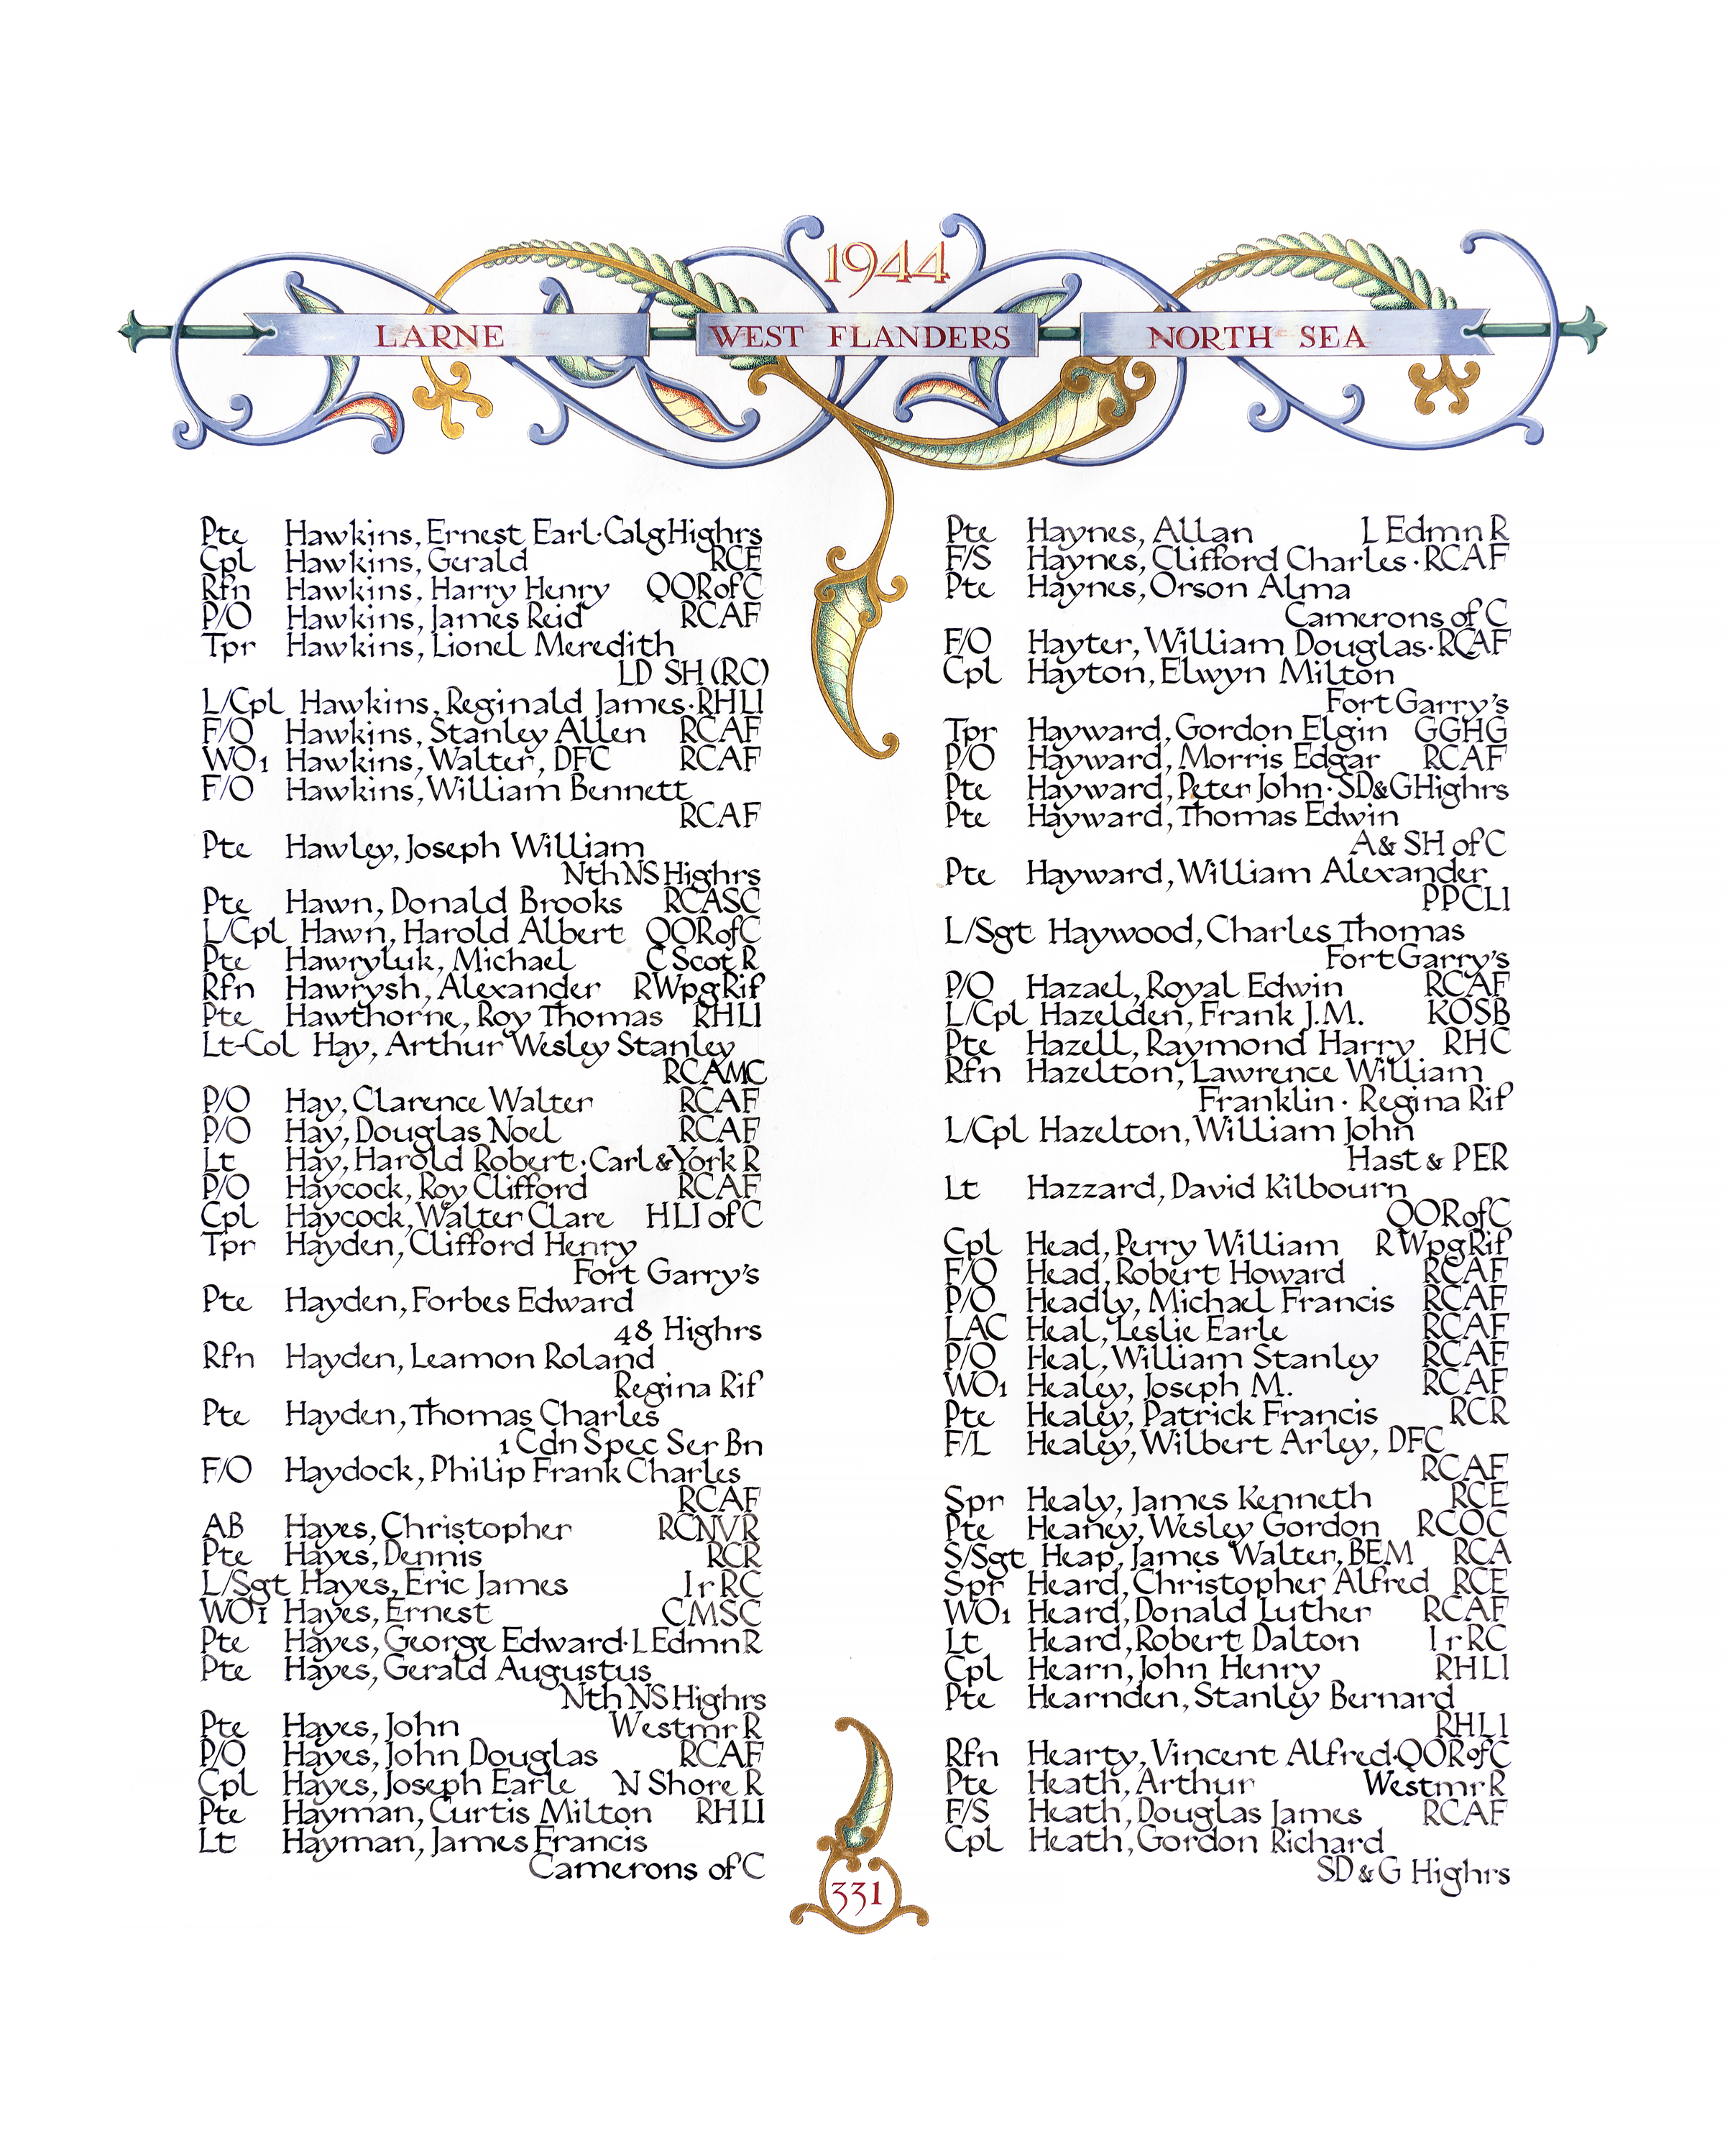 1944
LARNE WEST FLANDERS NORTH SEA
Pte Hawkins, Ernest Earl·CalgHighrs
Cpl Hawkins, Gerald RCE
Rfn Hawkins, Harry Henry QORofC
P/O Hawkins, James Reid RCAF
Tpr Hawkins, Lionel Meredith
LD SH (RC)
L/Cpl Hawkins, Reginald James·RHLI
F/O Hawkins, Stanley Allen RCAF
WO1 Hawkins, Walter, DFC RCAF
F/O Hawkins, William Bennett
RCAF
Pte Hawley, Joseph William
Nth NS Highrs
Pte Hawn, Donald Brooks RCASC
L/Cpl Hawn, Harold Albert QORofC
Pte Hawryluk, Michael C Scot R
Rfn Hawrysh, Alexander RWpgRif
Pte Hawthorne, Roy Thomas RHLI
Lt-Col Hay, Arthur Wesley Stanley
RCAMC
P/O Hay, Clarence Walter RCAF
P/O Hay, Douglas Noel RCAF
Lt Hay, Harold Robert·Carl & York R
P/O Haycock, Roy Clifford RCAF
Cpl Haycock, Walter Clare HLI of C
Tpr Hayden, Clifford Henry
Fort Garry's
Pte Hayden, Forbes Edward
48 Highrs
Rfn Hayden, Leamon Roland
Regina Rif
Pte Hayden, Thomas Charles
1 Cdn Spec Ser Bn
F/O Haydock, Philip Frank Charles
RCAF
AB Hayes, Christopher RCNVR
Pte Hayes, Dennis RCR
L/Sgt Hayes, Eric James Ir RC
WO1 Hayes, Ernest CMSC
Pte Hayes, George Edward·L Edmn R
Pte Hayes, Gerald Augustus
Nth NS Highrs
Pte Hayes, John Westmr R
P/O Hayes, John Douglas RCAF
Cpl Hayes, Joseph Earle N Shore R
Pte Hayman, Curtis Milton RHLI
Lt Hayman, James Francis
Camerons of C
Pte Haynes, Allan L Edmn R
F/S Haynes, Clifford Charles·RCAF
Pte Haynes, Orson Alma
Camerons of C
F/O Hayter, William Douglas·RCAF
Cpl Hayton, Elwyn Milton
Fort Garry's
Tpr Hayward, Gordon Elgin GGHG
P/O Hayward, Morris Edgar RCAF
Pte Hayward, Peter John·SD&GHighrs
Pte Hayward, Thomas Edwin
A & SH of C
Pte Hayward, William Alexander
PPCLI
L/Sgt Haywood, Charles Thomas
Fort Garry's
P/O Hazael, Royal Edwin RCAF
L/Cpl Hazelden, Frank J.M. KOSB
Pte Hazell, Raymond Harry RHC
Rfn Hazelton, Lawrence William
Franklin· Regina Rif
L/Cpl Hazelton, William John
Hast & PER
Lt Hazzard, David Kilbourn
QORofC
Cpl Head, Perry William RWpgRif
F/O Head, Robert Howard RCAF
P/O Headly, Michael Francis RCAF
LAC Heal, Leslie Earle RCAF
P/O Heal, William Stanley RCAF
WO1 Healey, Joseph M. RCAF
Pte Healey, Patrick Francis RCR
F/L Healey, Wilbert Arley, DFC
RCAF
Spr Healy, James Kenneth RCE
Pte Heaney, Wesley Gordon RCOC
S/Sgt Heap, James Walter, BEM RCA
Spr Heard, Christopher Alfred RCE
WO1 Heard, Donald Luther RCAF
Lt Heard, Robert Dalton Ir RC
Cpl Hearn, John Henry RHLI
Pte Hearnden, Stanley Bernard
RHLI
Rfn Hearty, Vincent Alfred·QORofC
Pte Heath, Arthur Westmr R
F/S Heath, Douglas James RCAF
Cpl Heath, Gordon Richard
SD & G Highrs
331